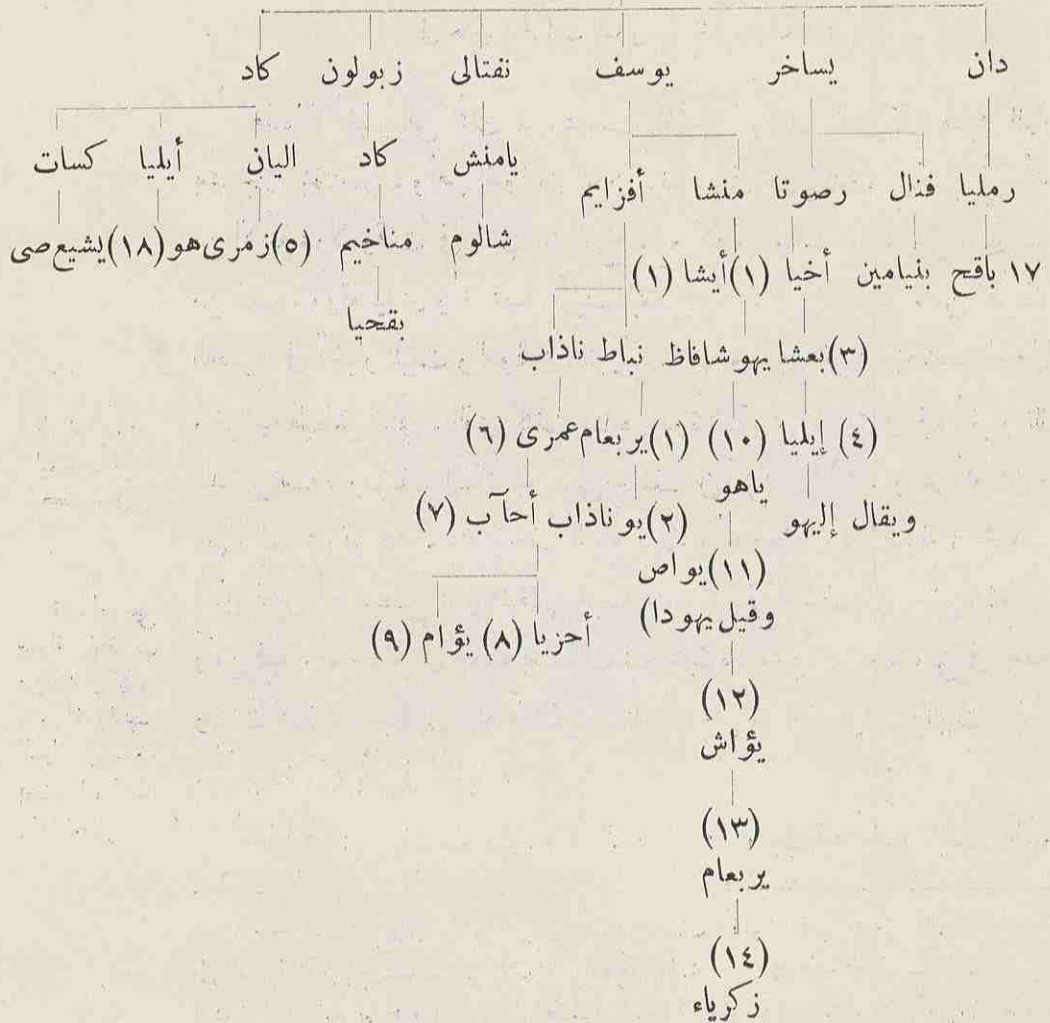 دان يساخر يوسف نفتالى زبولون كاد
رمليا فنال رصوتا منشا أفزايم يامنش كاد اليان أيليا كسات
١٧ باقح بنيامين أخيا (١) أيشا (١) شالوم مناخيم (٥) زمرى هو (١٨) يشيع صى
بقحيا
(٣) بعشا يهوشافاظ نباط ناذاب
(٤) إيليا (١٠) (١) يربعام عمرى (٦)
ياهو
ويقال إليهو (٢) يوناذاب أحآب (٧)
(١١) يواص
وقيل يهودا) أحزيا (٨) يؤام (٩)
(١٢)
يؤاش
(١٣)
يربعام
(١٤)
زكرياء